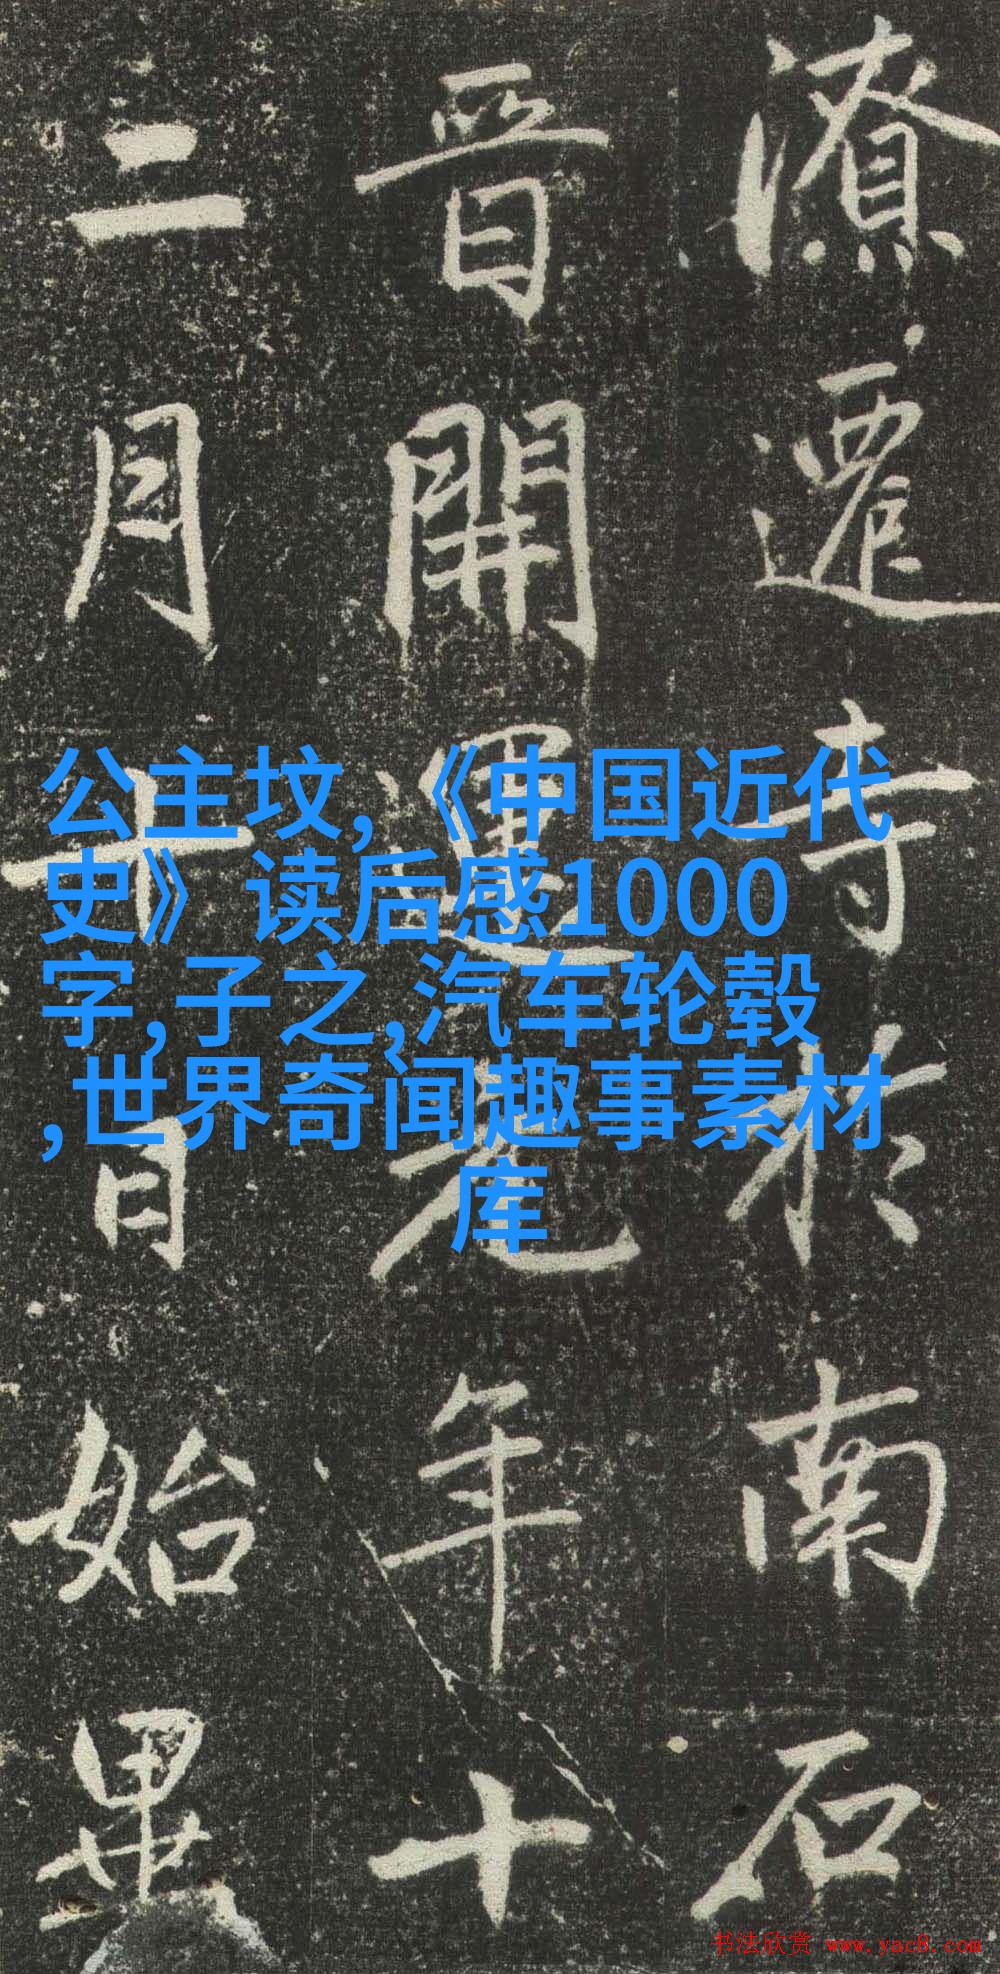 潦遷寺於南石
晉開運元年十
二月十日始畢
公主坟,《中国近代
史》读后感1000
字,子之,汽车轮毂
,世界奇闻趣事素材
库
书法欣赏 www.yac8.com